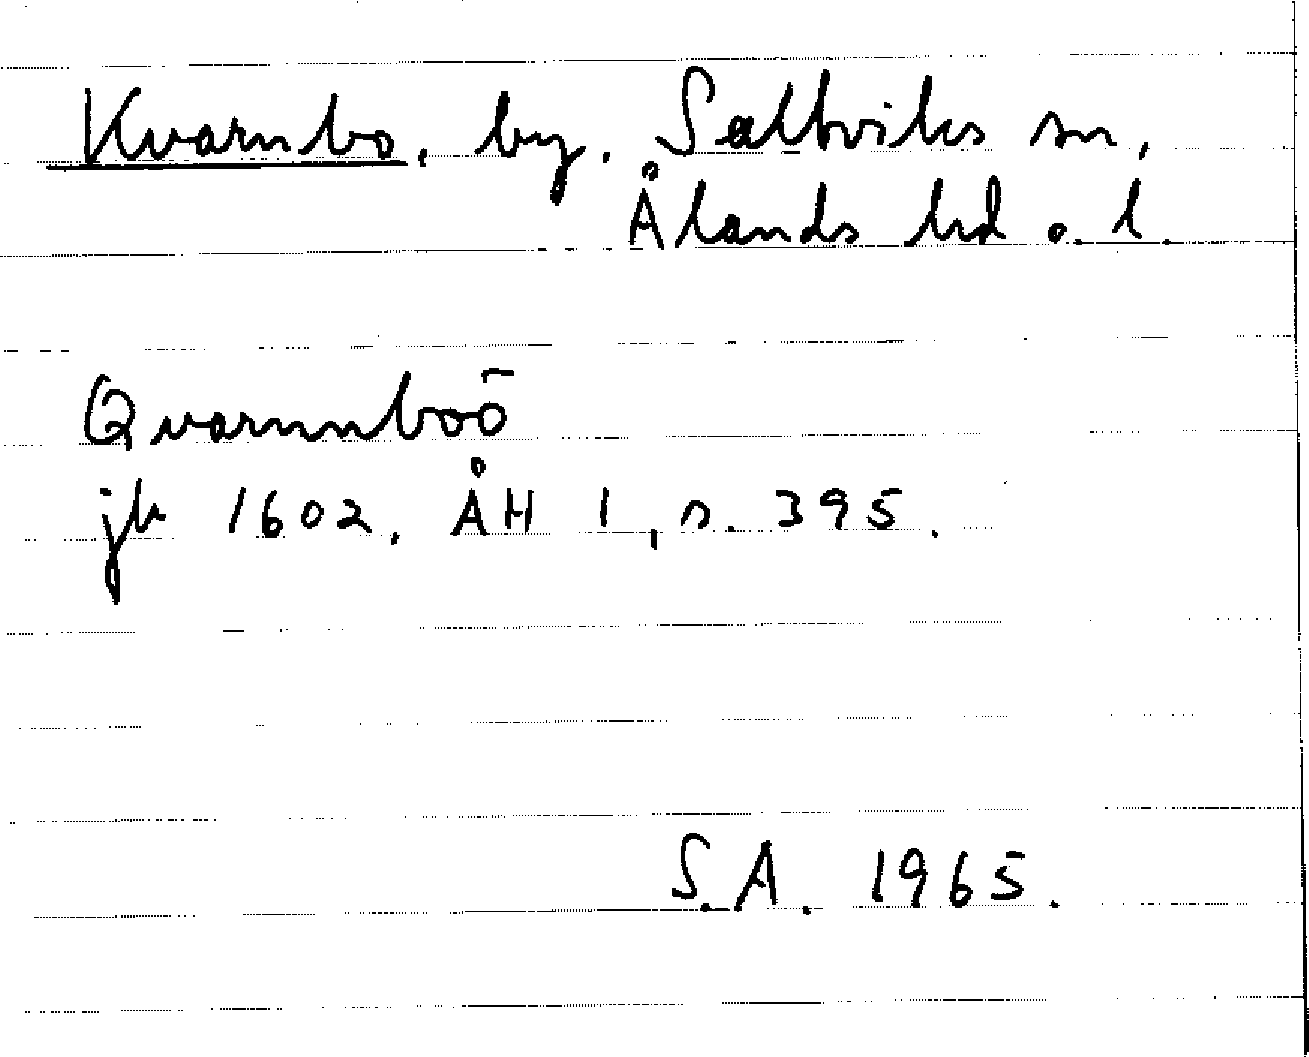 Kvarnbo, by. Saltviks sn,
Ålands hd o. l.
Qvarnnboō
jb 1602. ÅH 1, s. 395.
S.A. 1965.